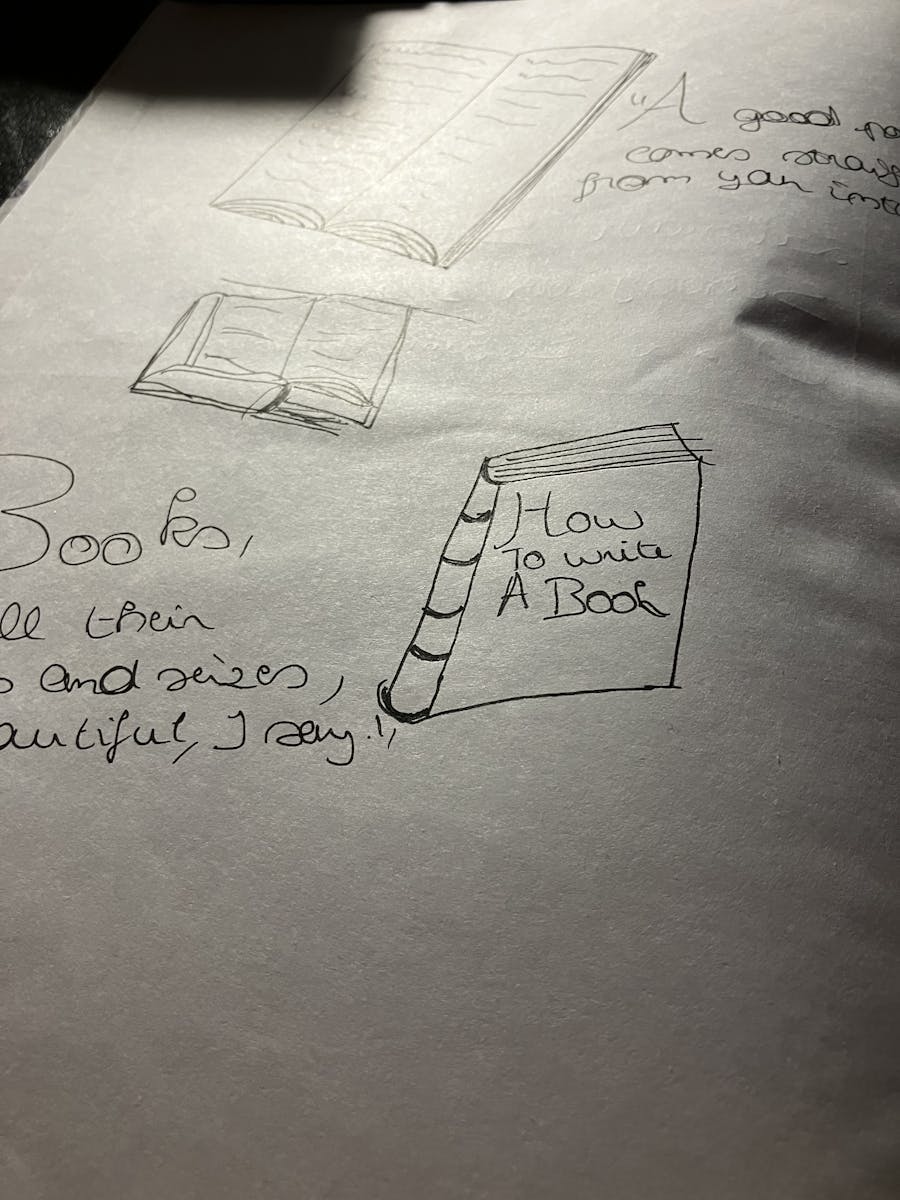 "A good po
comes straig
from your inst
Books,
ll their
s and seizes,
autiful, I say!,,
How
To write
A Book